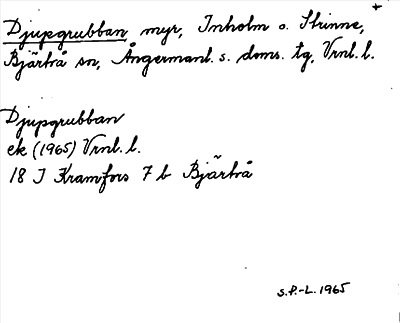 Djupgrubban, myr, Inholm o. Strinne,
Bjärtrå sn, Ångermanl. s. doms. tg, Vrnl. l.
Djupgrubban
ek (1965) Vrnl. l.
18 J Kramfors 7 b Bjärtrå
S.P.-L. 1965